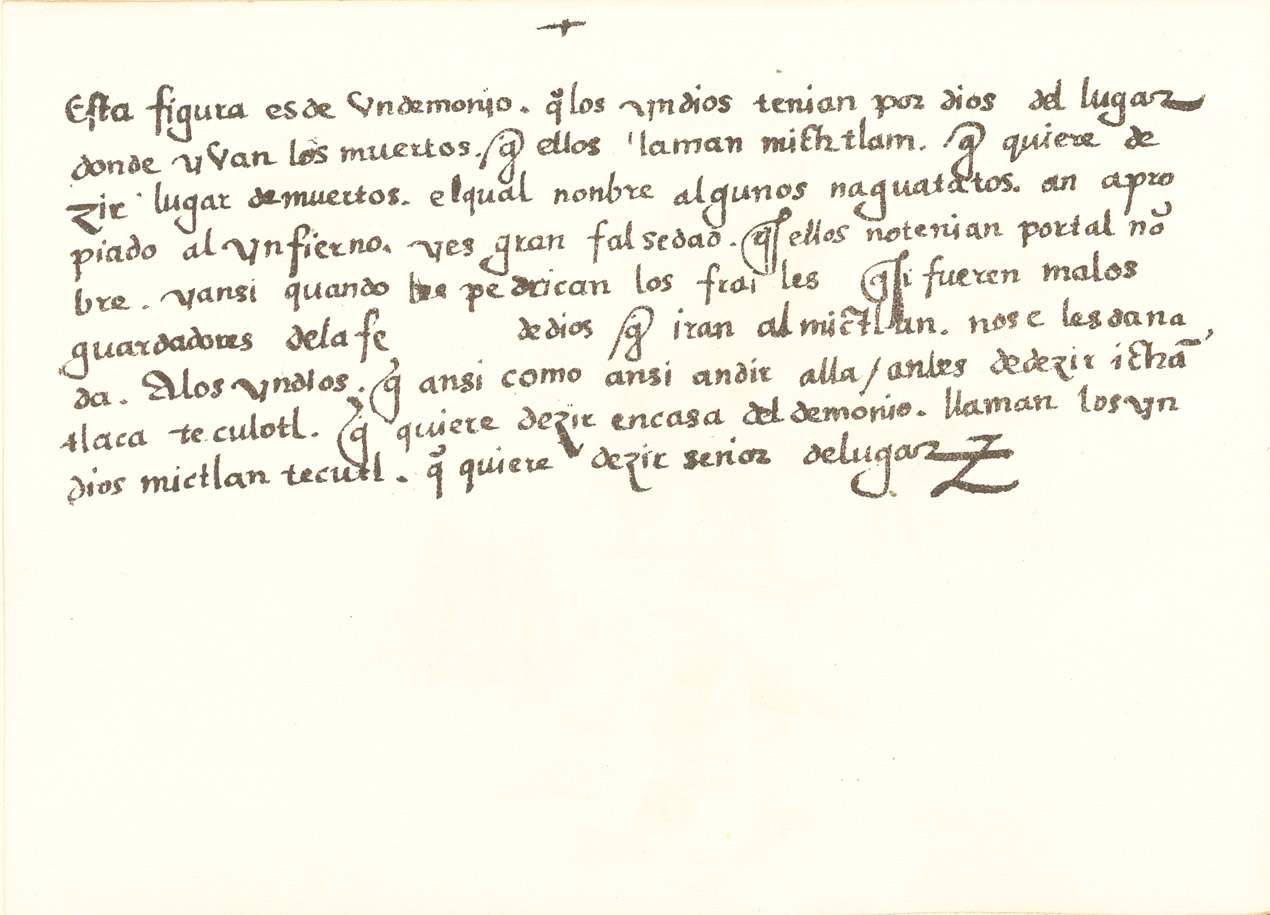 Esta figura es de Vn demonjo. q̃ los yndios tenian por dios del lugar
donde yVan los muertos. / q̃ ellos llaman michtlam. / q̃ quiere de
zir lugar de muertos. el qual nonbre algunos naguatatos. an apro
piado al ynfierno. yes gran falsedad. q̃ ellos notenian por tal nõ
bre. yansi quando les pedrican los frailes q̃ si fueren malos
guardadores dela fe de dios / q̃ iran al mictlan. nose les da na
da. Alos yndios. q̃ ansi como ansi an dir alla / antes de dezir ichã
tlaca teculotl. q̃ quiere dezir en casa del demonio. llaman los yn
dios mictlan tecutl. q̃ quiere dezir senior delugar